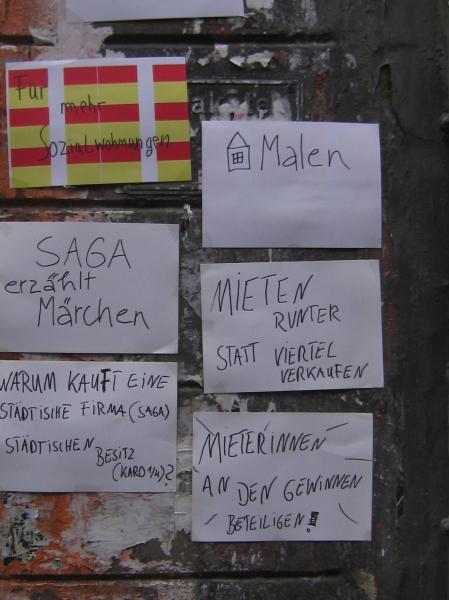 Für
mehr
Sozialwohnungen
Malen
SAGA
erzählt
Märchen
MIETEN
RUNTER
STATT VIERTEL
VERKAUFEN
WARUM KAUFT EINE
STÄDTISCHE FIRMA (SAGA)
STÄDTISCHEN
BESITZ
(KARO 1/4)?
MIETER'INNEN
AN DEN GEWINNEN
BETEILIGEN!